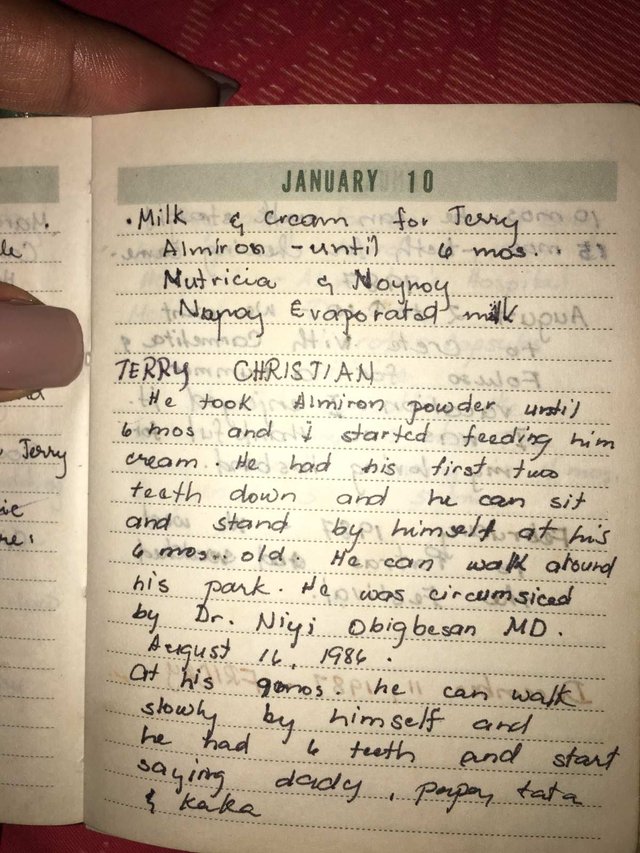 JANUARY 10
• Milk & cream for Terry
Almiron - until 6 mos.
Nutricia & Noynoy
Napoy Evaporated milk
TERRY CHRISTIAN
. He took Almiron powder until
6 mos and i started feeding him
cream. He had his first two
teeth down and he can sit
and stand by himself at his
6 mos.. old. He can walk around
his park. He was circumsiced
by Dr. Niyi Obigbesan MD.
August 16, 1986.
At his mos. he can walk
slowly by himself and
he had 6 teeth and start
saying dady, papay tata
& kaka
Terry